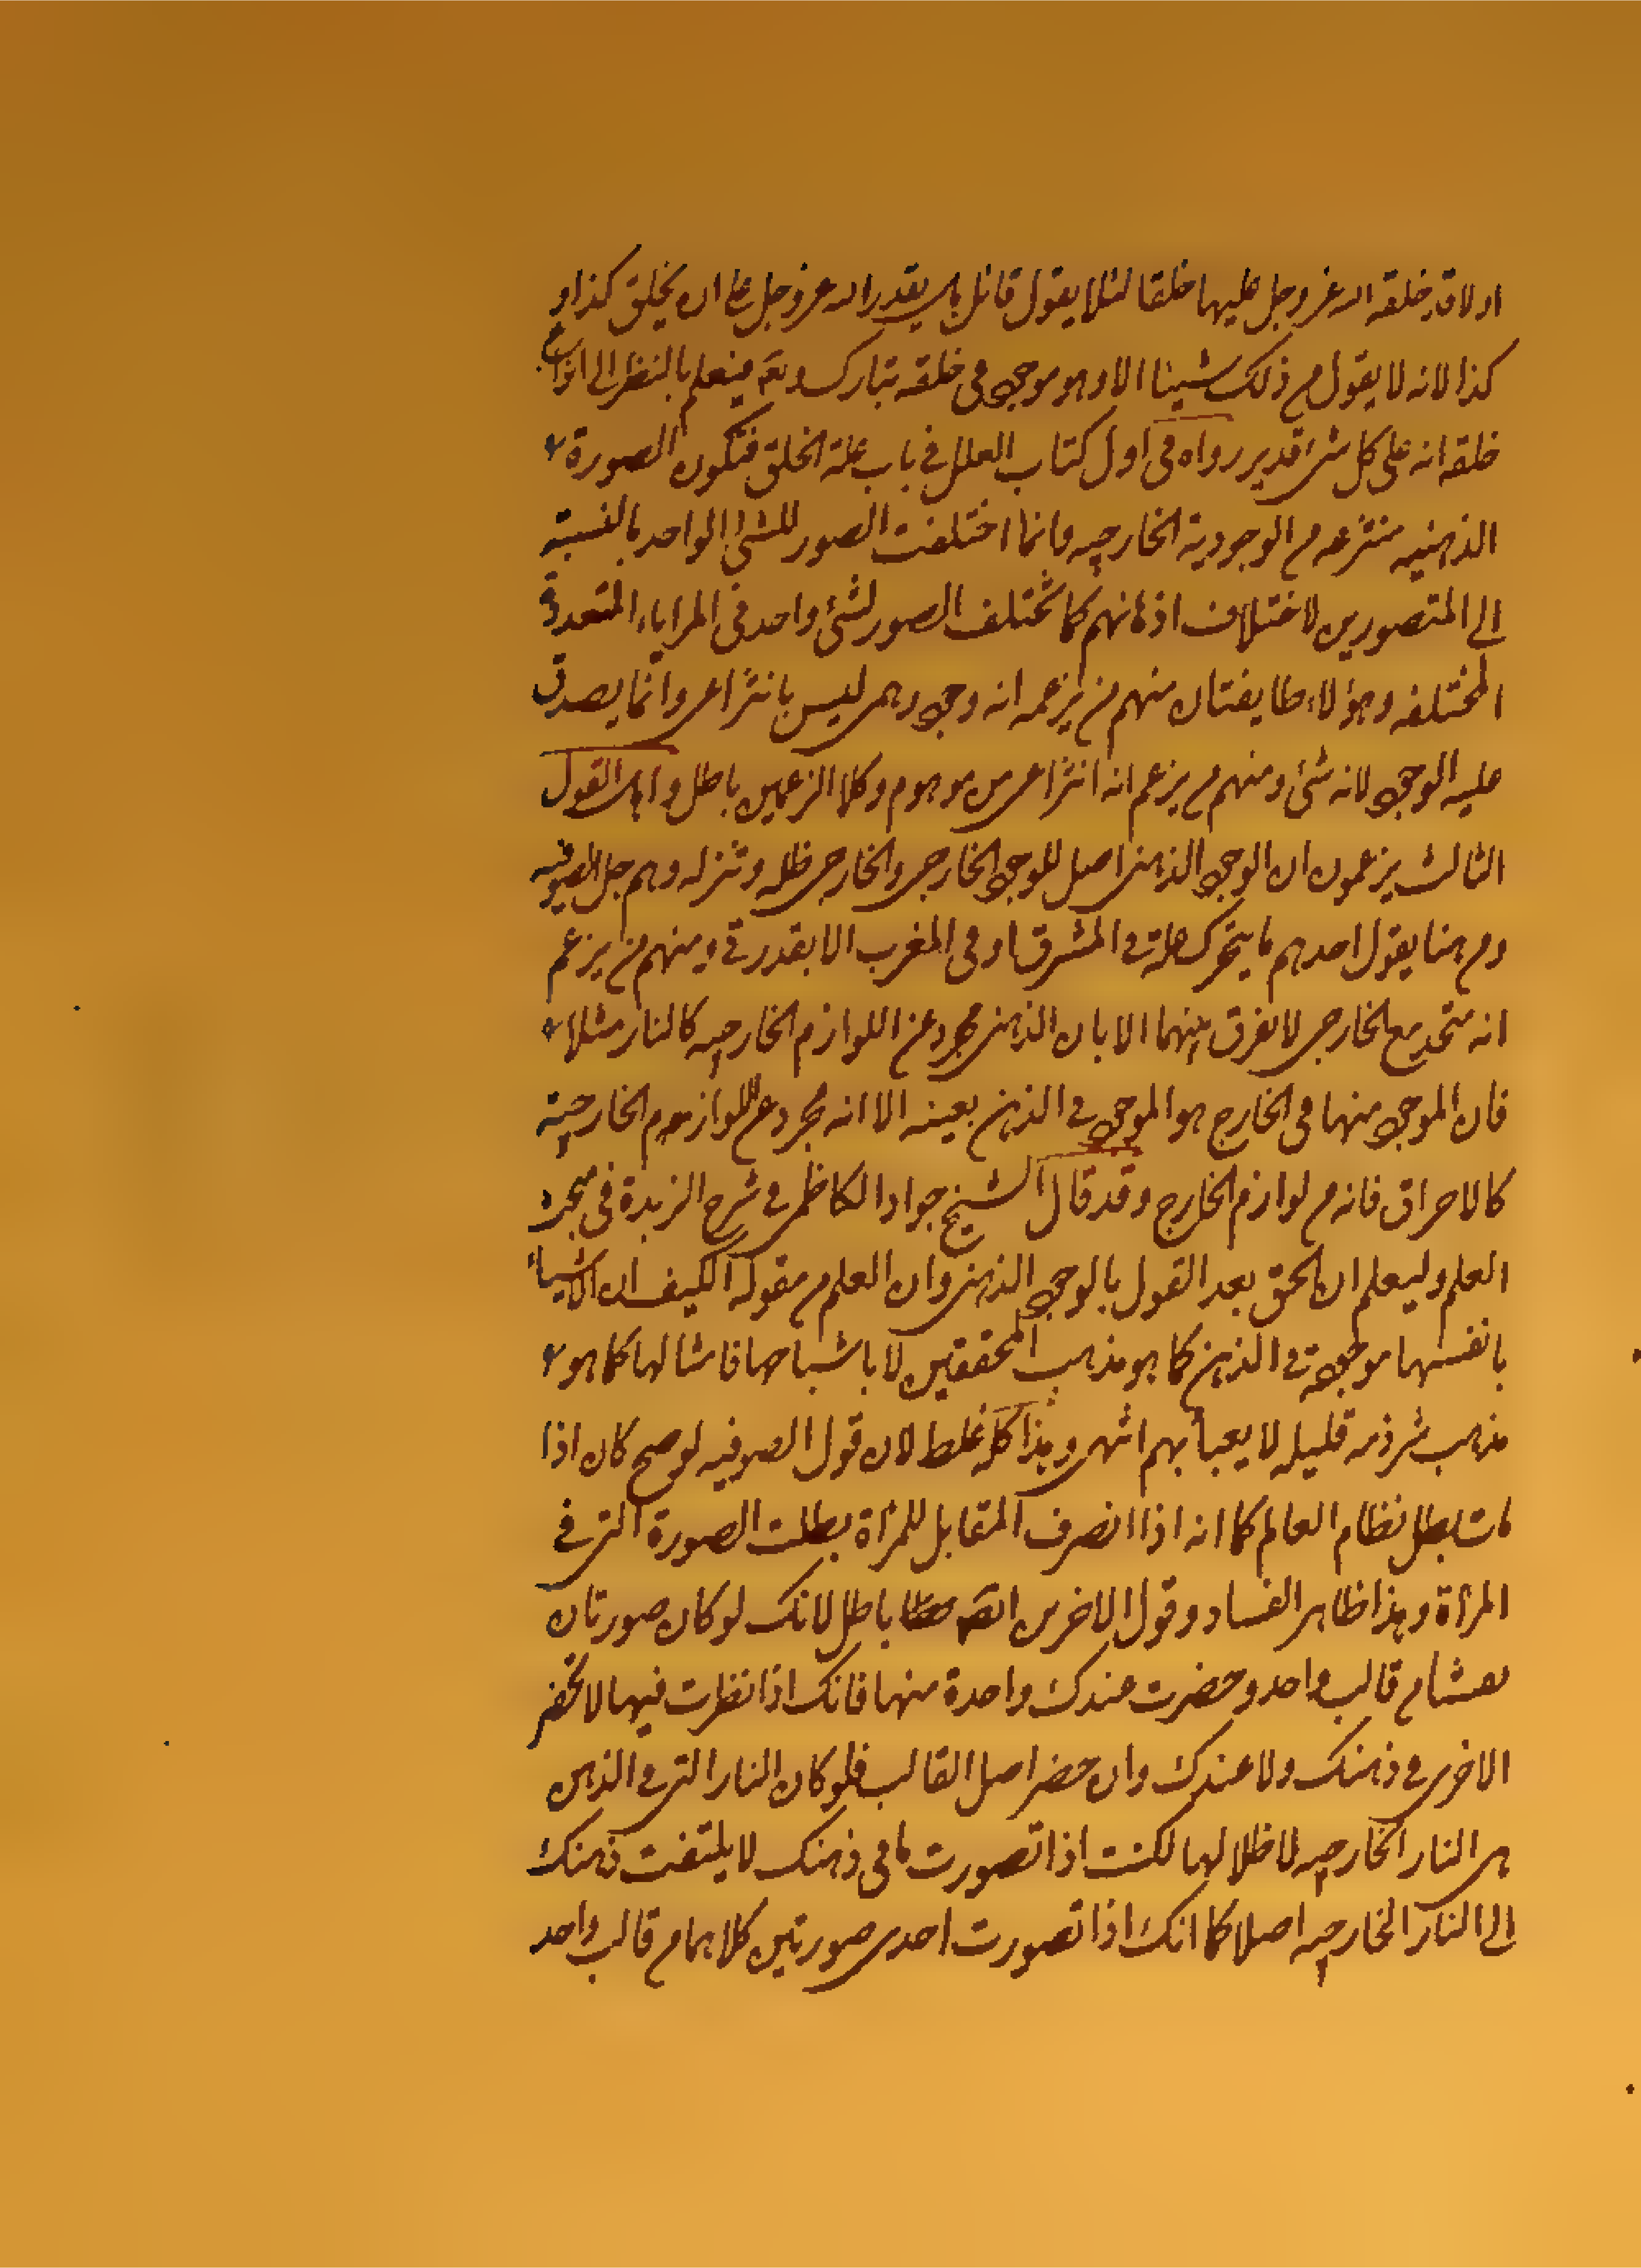 او لا وقد خلقه الله عز وجل عليها خلقا لئلا يقول قائل هل يقدر الله عز وجل على ان يخلق كذا و
كذا لانه لا يقول من ذلك شيئا الا وهو موجود في خلقه تبارك وتع فيعلم بالنظر الى انواع
خلقه انه على كل شئ قدير رواه في اول كتاب العلل في باب علة الخلق فتكون الصورة
الذهنيه منتزعه من الوجودية الخارجيه وانما اختلفت الصور للشئ الواحد بالنسبة
الى المتصورين لاختلاف اذهانهم كما تختلف الصور لشئ واحد في المرايا المتعددة
المختلفه وهؤلاء طايفتان منهم من يزعم انه وجودي ليس بانتزاعي وانما يصدق
عليه الوجود لانه شئ ومنهم من يزعم انه انتزاعي موهوم وكلا الزعمين باطل واهل القول
الثالث يزعمون ان الوجود الذهني اصل للوجود الخارجي والخارجي ظله وتنزله وهم جل الصوفيه
ومن هنا يقول احدهم ما يتحرك نملة في المشرق او في المغرب الا بقدرتي ومنهم من يزعم
انه متحد مع الخارجي لا يفرق بينهما الا بان الذهني مجرد عن اللوازم الخارجيه كالنار مثلا
فان الموجود منها في الخارج هو الموجود في الذهن بعينه الا انه مجرد عن اللوازم الخارجية
كالاحراق فانه من لوازم الخارج وقد قال الشيخ جواد الكاظمي في شرح الزبدة في مبحث
العلم وليعلم ان الحق بعد القول بالوجود الذهني وان العلم من مقولة الكيف ان الاشياء
بانفسها موجودة في الذهن كما هو مذهب المحققين لا باشباحها وامثالها كما هو
مذهب شرذمه قليله لا يعبأ بهم انتهى وهذا كله غلط لان قول الصوفيه لو صح كان اذا
مات بطل نظام العالم كما انه اذا انصرف المقابل للمرأة بطلت الصورة التي في
المرأة وهذا ظاهر الفساد وقول الاخرين باطل لانك لو كان صورتان
من قالب واحد وحضرت عندك واحدة منها فانك اذا نظرت فيها لا تحضر
الاخرى في ذهنك ولا عندك وان حضر اصل القالب فلو كان النار التي في الذهن
هي النار الخارجيه لا ظلا لها لكنت اذا تصورت ما في ذهنك لا يلتفت ذهنك
الى النار الخارجيه اصلا كما انك اذا تصورت احدى صورتين كلاهما من قالب واحد